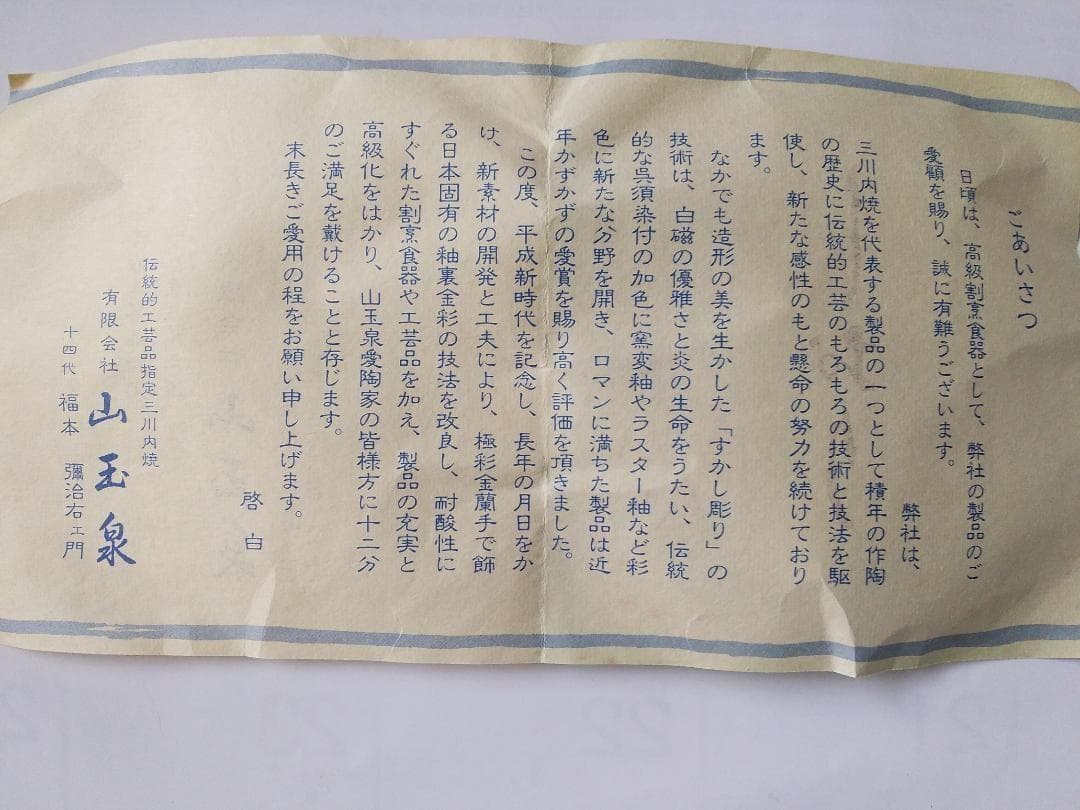 ごあいさつ
日頃は、高級割烹食器として、弊社の製品のご
愛顧を賜り、誠に有難うございます。
弊社は、
三川内焼を代表する製品の一つとして積年の作陶
の歴史に伝統的工芸のもろもろの技術と技法を駆
使し、新たな感性のもと懸命の努力を続けており
ます。
なかでも造形の美を生かした「すかし彫り」の
技術は、白磁の優雅さと炎の生命をうたい、伝統
的な呉須染付の加色に窯変釉やラスター釉など彩
色に新たな分野を開き、ロマンに満ちた製品は近
年かずかずの愛賞を賜り高く評価を頂きました。
この度、平成新時代を記念し、長年の月日をか
け、新素材の開発と工夫により、極彩金蘭手で飾
る日本固有の釉裏金彩の技法を改良し、耐酸性に
すぐれた割烹食器や工芸品を加え、製品の充実と
高級化をはかり、山玉泉愛陶家の皆様方に十二分
のご満足を戴けることと存じます。
末長きご愛用の程をお願い申し上げます。
啓白
伝統的工芸品指定三川内焼
有限会社 山玉泉
十四代 福本 彌治右ェ門